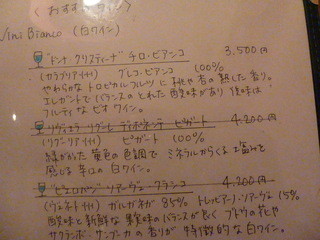 〈おすすめワイン〉
Vini Bianco (白ワイン)
"ドンナ クリスティーナ" チロ・ビアンコ 3,500円
(カラブリア州) グレコ・ビアンコ 100%
やわらかなトロピカルフルーツに 桃や杏の熟した香り。
エレガントでバランスのとれた酸味があり 後味は
フルーティなビオワイン。
リヴィエラ・リグレ ディ ポネンテ ピガート 4,200円
(リグーリア州) ピガート 100%
緑がかった黄色の色調で ミネラルからくる塩みを
感じる辛口の白ワイン。
"ピエロパン" ソアーヴェ・クラシコ 4,200円
(ヴェネト州) ガルガネガ 85% トレッビアーノ・ソアーヴェ 15%
酸味と新鮮な果実味のバランスが良く ブドウの花や
サクランボ、サンブーカの香りが特徴的な白ワイン。